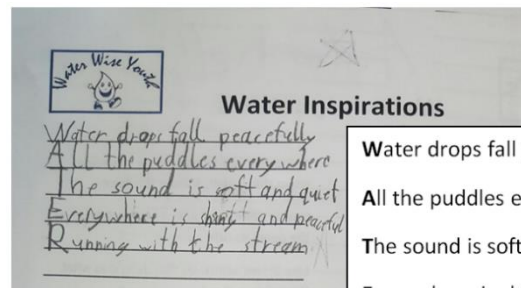 Water Wise Youth
Water Inspirations
Water drops fall peacefully
All the puddles everywhere
The sound is soft and quiet
Everywhere is and peaceful
Running with the stream
Water drops fall
All the puddles e
The sound is soft